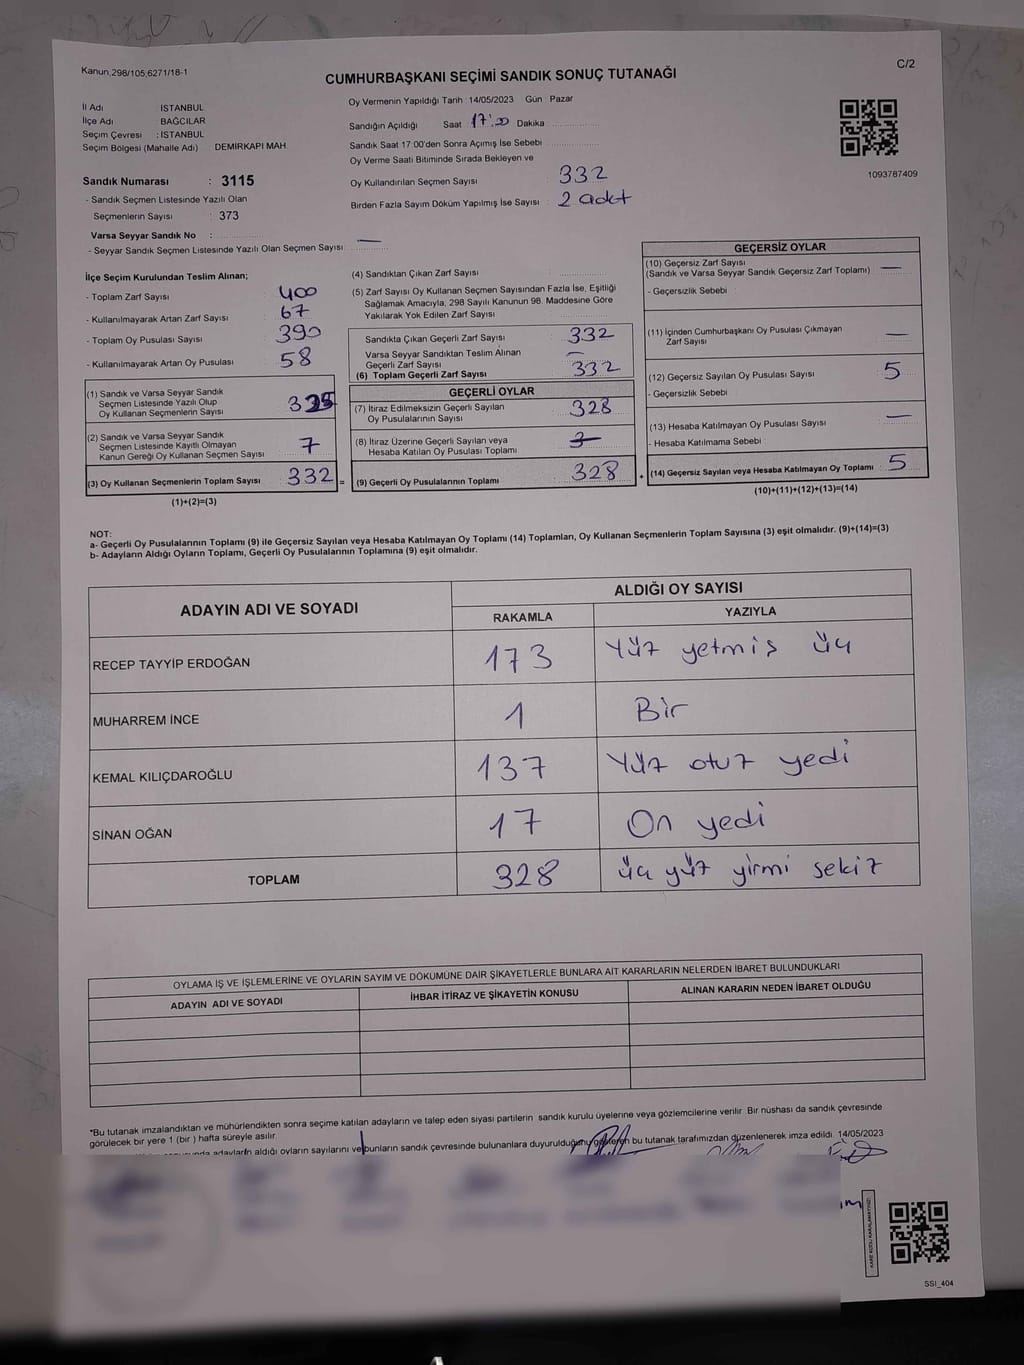 Kanun,298/105,6271/18-1
C/2
CUMHURBAŞKANI SEÇİMİ SANDIK SONUÇ TUTANAĞI
İl Adı İSTANBUL
İlçe Adı BAĞCILAR
Seçim Çevresi : İSTANBUL
Seçim Bölgesi (Mahalle Adı) DEMİRKAPI MAH.
Oy Vermenin Yapıldığı Tarih : 14/05/2023 Gün Pazar
Sandığın Açıldığı Saat 17:00 Dakika
Sandık Saat 17:00'den Sonra Açımış İse Sebebi
Oy Verme Saati Bitiminde Sırada Bekleyen ve
Oy Kullandırılan Seçmen Sayısı 332
Birden Fazla Sayım Döküm Yapılmış İse Sayısı 2 adet
1093787409
Sandık Numarası : 3115
- Sandık Seçmen Listesinde Yazılı Olan
Seçmenlerin Sayısı : 373
Varsa Seyyar Sandık No :
- Seyyar Sandık Seçmen Listesinde Yazılı Olan Seçmen Sayısı: —
İlçe Seçim Kurulundan Teslim Alınan;
- Toplam Zarf Sayısı 400
- Kullanılmayarak Artan Zarf Sayısı 67
- Toplam Oy Pusulası Sayısı 390
- Kullanılmayarak Artan Oy Pusulası 58
(1) Sandık ve Varsa Seyyar Sandık
Seçmen Listesinde Yazılı Olup
Oy Kullanan Seçmenlerin Sayısı 325
(2) Sandık ve Varsa Seyyar Sandık
Seçmen Listesinde Kayıtlı Olmayan
Kanun Gereği Oy Kullanan Seçmen Sayısı 7
(3) Oy Kullanan Seçmenlerin Toplam Sayısı 332 =
(1)+(2)=(3)
(4) Sandıktan Çıkan Zarf Sayısı
(5) Zarf Sayısı Oy Kullanan Seçmen Sayısından Fazla İse, Eşitliği
Sağlamak Amacıyla, 298 Sayılı Kanunun 98. Maddesine Göre
Yakılarak Yok Edilen Zarf Sayısı
Sandıkta Çıkan Geçerli Zarf Sayısı 332
Varsa Seyyar Sandıktan Teslim Alınan
Geçerli Zarf Sayısı —
(6) Toplam Geçerli Zarf Sayısı 332
GEÇERLİ OYLAR
(7) İtiraz Edilmeksizin Geçerli Sayılan
Oy Pusulalarının Sayısı 328
(8) İtiraz Üzerine Geçerli Sayılan veya
Hesaba Katılan Oy Pusulası Toplamı
(9) Geçerli Oy Pusulalarının Toplamı 328 +
GEÇERSİZ OYLAR
(10) Geçersiz Zarf Sayısı
(Sandık ve Varsa Seyyar Sandık Geçersiz Zarf Toplamı) —
- Geçersizlik Sebebi :
(11) İçinden Cumhurbaşkanı Oy Pusulası Çıkmayan
Zarf Sayısı —
(12) Geçersiz Sayılan Oy Pusulası Sayısı 5
- Geçersizlik Sebebi :
(13) Hesaba Katılmayan Oy Pusulası Sayısı —
- Hesaba Katılmama Sebebi :
(14) Geçersiz Sayılan veya Hesaba Katılmayan Oy Toplamı 5
(10)+(11)+(12)+(13)=(14)
NOT:
a- Geçerli Oy Pusulalarının Toplamı (9) ile Geçersiz Sayılan veya Hesaba Katılmayan Oy Toplamı (14) Toplamları, Oy Kullanan Seçmenlerin Toplam Sayısına (3) eşit olmalıdır. (9)+(14)=(3)
b- Adayların Aldığı Oyların Toplamı, Geçerli Oy Pusulalarının Toplamına (9) eşit olmalıdır.
ADAYIN ADI VE SOYADI ALDIĞI OY SAYISI
RAKAMLA YAZIYLA
RECEP TAYYİP ERDOĞAN 173 Yüz yetmiş üç
MUHARREM İNCE 1 Bir
KEMAL KILIÇDAROĞLU 137 Yüz otuz yedi
SİNAN OĞAN 17 On yedi
TOPLAM 328 üç yüz yirmi sekiz
OYLAMA İŞ VE İŞLEMLERİNE VE OYLARIN SAYIM VE DÖKÜMÜNE DAİR ŞİKAYETLERLE BUNLARA AİT KARARLARIN NELERDEN İBARET BULUNDUKLARI
ADAYIN ADI VE SOYADI İHBAR İTİRAZ VE ŞİKAYETİN KONUSU ALINAN KARARIN NEDEN İBARET OLDUĞU
*Bu tutanak imzalandıktan ve mühürlendikten sonra seçime katılan adayların ve talep eden siyasi partilerin sandık kurulu üyelerine veya gözlemcilerine verilir. Bir nüshası da sandık çevresinde
görülecek bir yere 1 (bir) hafta süreyle asılır.
adayların aldığı oyların sayılarını ve bunların sandık çevresinde bulunanlara duyurulduğunu gösteren bu tutanak tarafımızdan düzenlenerek imza edildi. 14/05/2023
KARE KODU KARALAMAYINIZ!
SSI_404